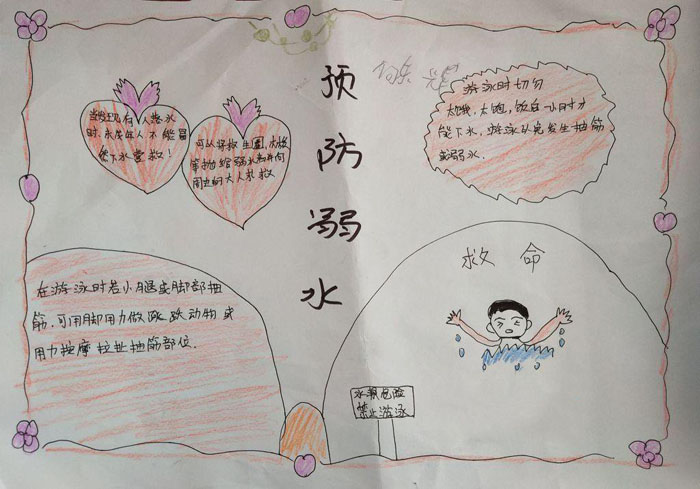 预防弱水
当发现有人落水
时,未成年人不能冒
然下水营救!
可以将救生圈,木板
等抛给弱水者并向
周边的大人求救
游泳时切勿
太饿、太饱,饭后一小时才
能下水,游泳以免发生抽筋
或弱水.
在游泳时若小腿或脚部抽
筋,可用脚用力做跳动物或
用力按摩拉扯抽筋部位.
救命
水深危险
禁止游泳